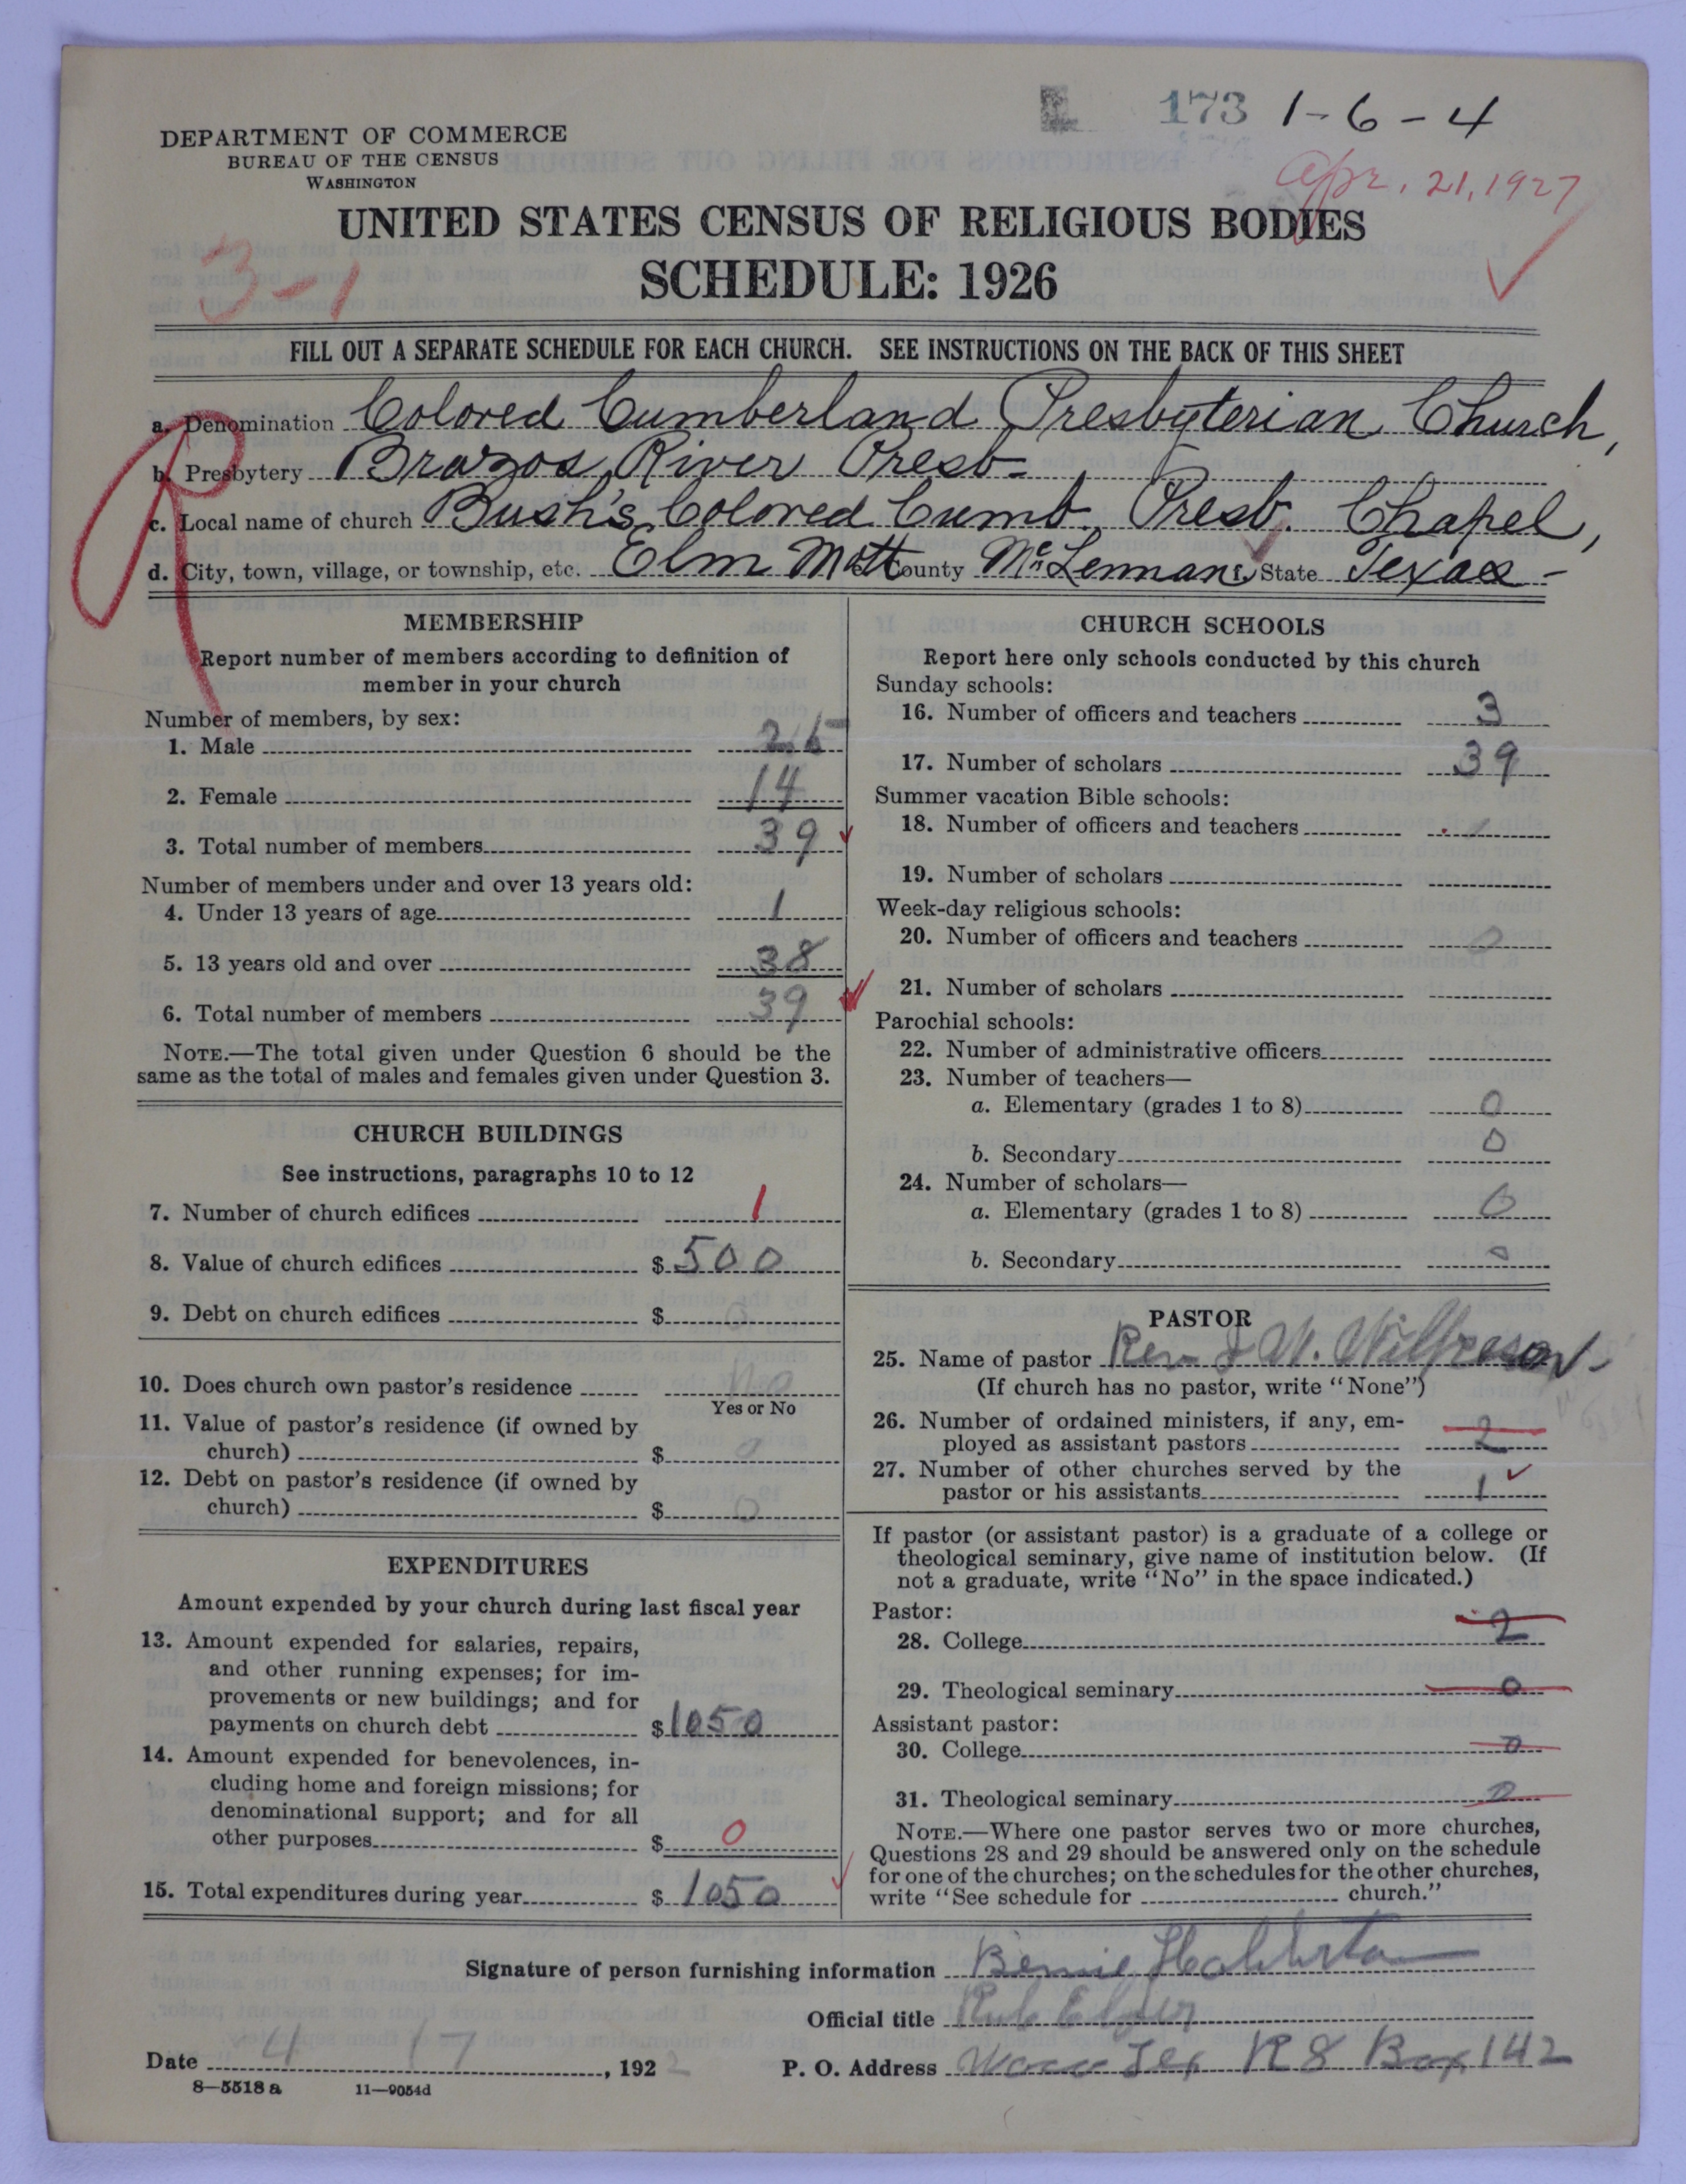 173 1-6-4
DEPARTMENT OF COMMERCE
BUREAU OF THE CENSUS
WASHINGTON
Apr. 21, 1927
UNITED STATES CENSUS OF RELIGIOUS BODIES
SCHEDULE: 1926
3-1
FILL OUT A SEPARATE SCHEDULE FOR EACH CHURCH. SEE INSTRUCTIONS ON THE BACK OF THIS SHEET
R
a. Denomination Colored Cumberland Presbyterian Church,
b. Presbytery Brazos River Presb-
c. Local name of church Bush's Colored Cumb. Presb. Chapel,
d. City, town, village, or township, etc. Elm Mott County McLennan State Texas-
MEMBERSHIP
Report number of members according to definition of
member in your church
Number of members, by sex:
1. Male 25
2. Female 14
3. Total number of members 39
Number of members under and over 13 years old:
4. Under 13 years of age 1
5. 13 years old and over 38
6. Total number of members 39
NOTE.—The total given under Question 6 should be the
same as the total of males and females given under Question 3.
CHURCH BUILDINGS
See instructions, paragraphs 10 to 12
7. Number of church edifices 1
8. Value of church edifices $ 500
9. Debt on church edifices $ 0
10. Does church own pastor's residence No
Yes or No
11. Value of pastor's residence (if owned by
church) $ 0
12. Debt on pastor's residence (if owned by
church) $ 0
EXPENDITURES
Amount expended by your church during last fiscal year
13. Amount expended for salaries, repairs,
and other running expenses; for im-
provements or new buildings; and for
payments on church debt $ 1050
14. Amount expended for benevolences, in-
cluding home and foreign missions; for
denominational support; and for all
other purposes $ 0
15. Total expenditures during year $ 1050
CHURCH SCHOOLS
Report here only schools conducted by this church
Sunday schools:
16. Number of officers and teachers 3
17. Number of scholars 39
Summer vacation Bible schools:
18. Number of officers and teachers
19. Number of scholars
Week-day religious schools:
20. Number of officers and teachers 0
21. Number of scholars
Parochial schools:
22. Number of administrative officers
23. Number of teachers—
a. Elementary (grades 1 to 8) 0
b. Secondary 0
24. Number of scholars—
a. Elementary (grades 1 to 8) 0
b. Secondary 0
PASTOR
25. Name of pastor Rev J. W.
(If church has no pastor, write "None")
26. Number of ordained ministers, if any, em-
ployed as assistant pastors 2
27. Number of other churches served by the
pastor or his assistants 1
If pastor (or assistant pastor) is a graduate of a college or
theological seminary, give name of institution below. (If
not a graduate, write "No" in the space indicated.)
Pastor:
28. College 2
29. Theological seminary 0
Assistant pastor:
30. College 0
31. Theological seminary 0
NOTE.—Where one pastor serves two or more churches,
Questions 28 and 29 should be answered only on the schedule
for one of the churches; on the schedules for the other churches,
write "See schedule for church."
Signature of person furnishing information Bennie
Official title
Date 4 17, 1922
P. O. Address Waco Tex R 8 Box 142
8—5518 a 11—9054d